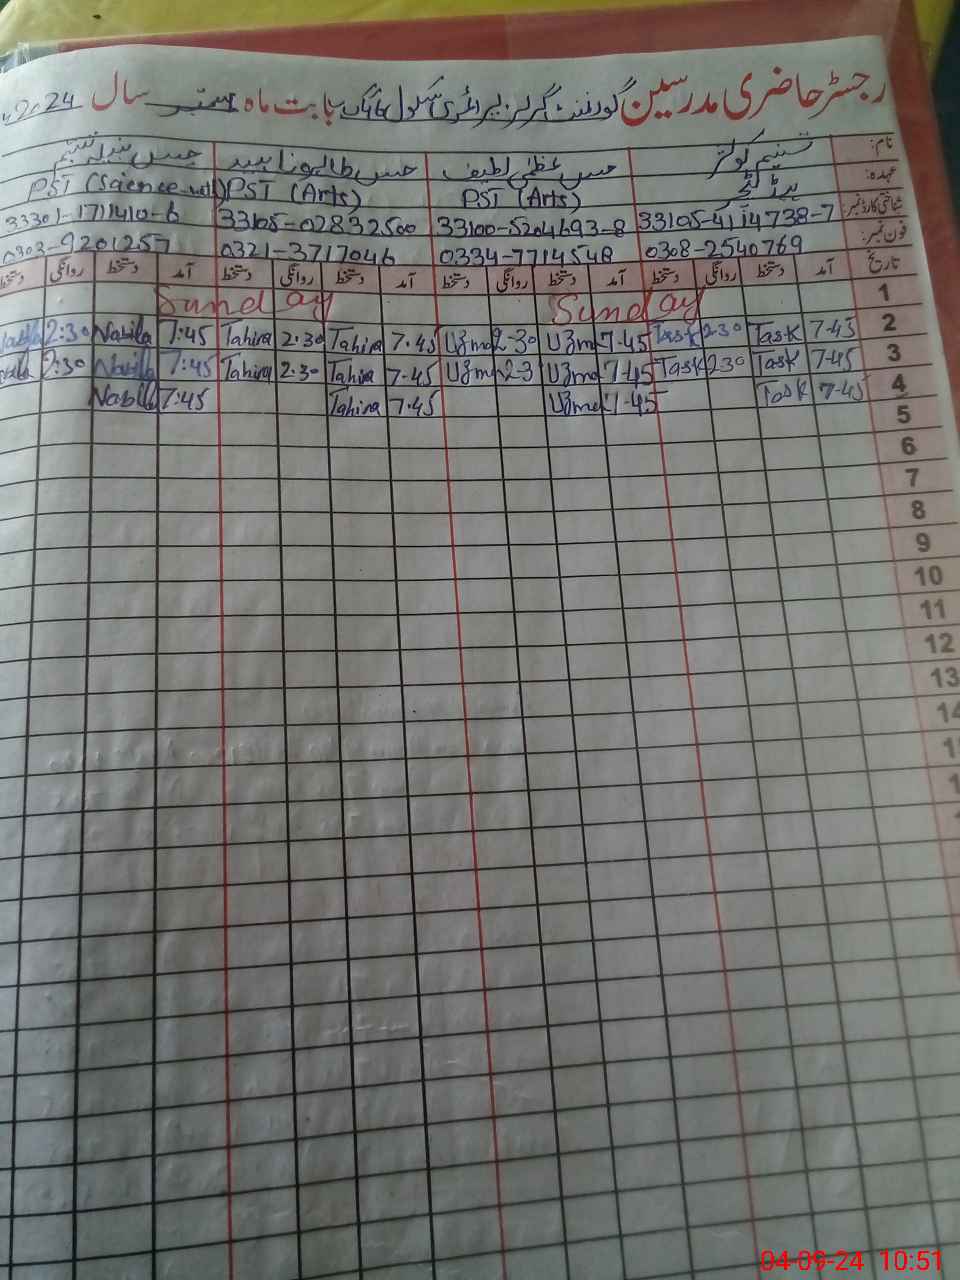 رجسٹر حاضری مدرسین گورنمنٹ گرلز پرائمری سکول بابت ماہ ستمبر سال 2024
نام: تسنیم کوثر مس عظمٰی لطیف مس طاہرہ ناہید مس نبیلہ تبسم
عہدہ: ہیڈ ٹیچر PST (Arts) PST (Arts) PST (Science
شناختی کارڈ نمبر: 33105-4114738-7 33100-5204693-8 33105-0283250 33301-1711410-6
فون نمبر: 0308-2540769 0334-7714548 0321-3717046 0303-9201257
تاریخ آمد دستخط روانگی دستخط آمد دستخط روانگی دستخط آمد دستخط روانگی دستخط آمد دستخط روانگی دستخط
1 Sunday Sunday
2 7-45 Task 2-30 Task 7-45 Uzma 2-30 Uzma 7.45 Tahira 2.30 Tahira 7:45 Nabila 2:30 Nabila
3 7-45 Task 2-30 Task 7-45 Uzma 2-3 Uzma 7-45 Tahira 2-30 Tahira 7:45 Nabila 2:30 Nabila
4 7-45 Task 7-45 Uzma 7.45 Tahira 7:45 Nabila
5
6
7
8
9
10
11
12
13
14
04-09-24 10:51